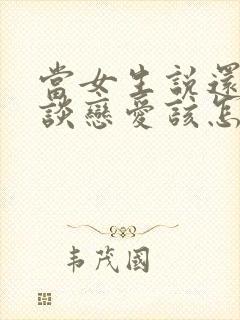 當女生說還
談戀愛該怎
韦茂國